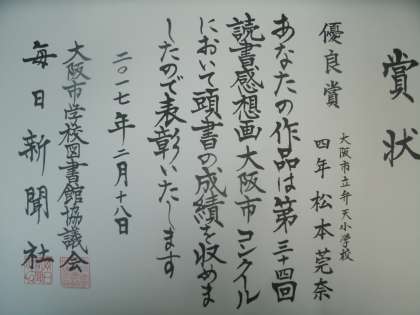 賞状
優良賞
大阪市立弁天小学校
四年 松本莞奈
あなたの作品は第三十四回
読書感想画大阪市コンクール
において頭書の成績を収めま
したので表彰いたします
二〇一七年二月十八日
大阪市学校図書館協議会
毎日新聞社